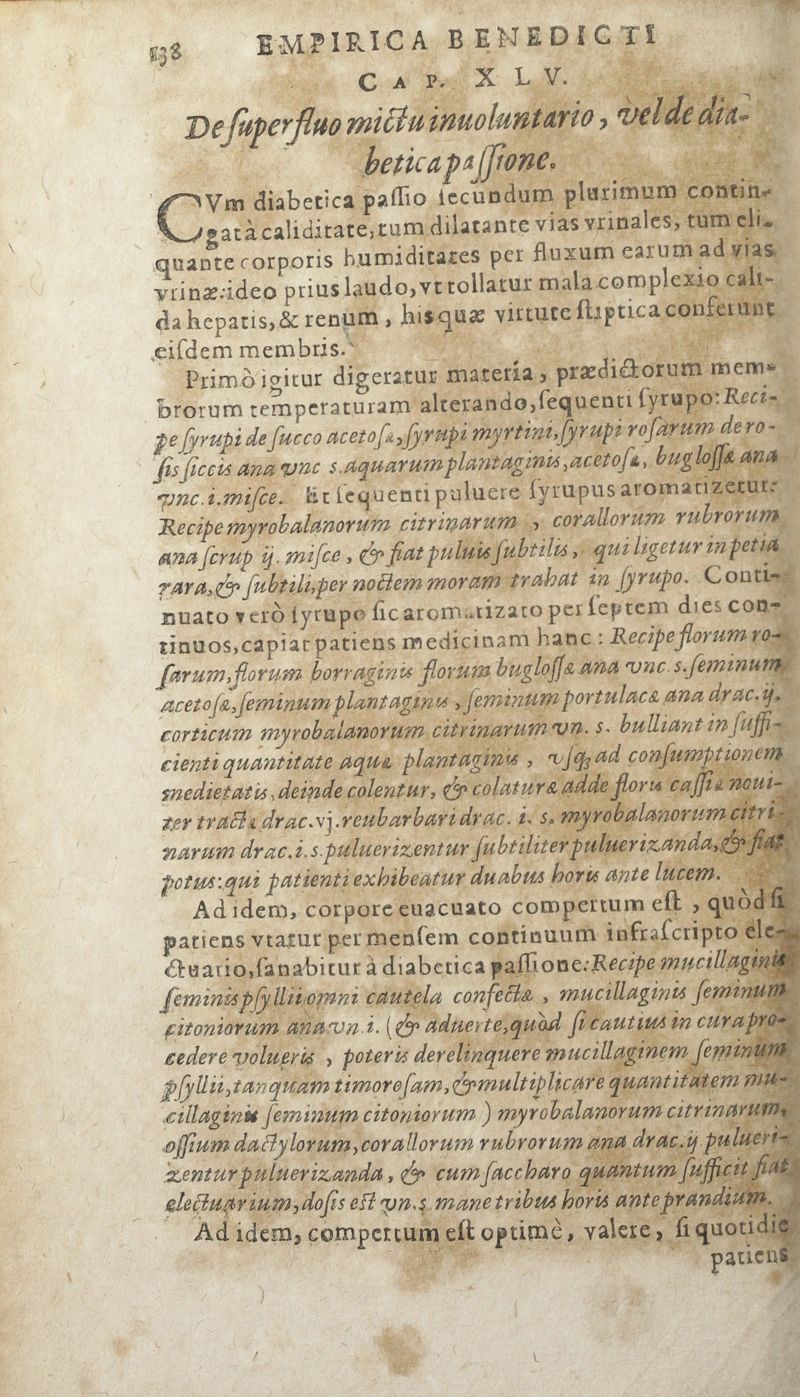 138 EMPIRICA BENEDICTI
CAP. XLV.
De ſuperfluo mictu inuoluntario, vel de dia-
betica paſſione.
CVm diabetica paſſio ſecundum plurimum contin-
gat à caliditate, tum dilatante vias vrinales, tum eli-
quante corporis humiditates per fluxum earum ad vias
vrinæ: ideo prius laudo, vt tollatur mala complexio cali-
da hepatis, & renum, his quæ virtute ſtiptica conferunt
eiſdem membris.
Primò igitur digeratur materia, prædictorum mem-
brorum temperaturam alterando, ſequenti ſyrupo: Reci-
pe ſyrupi de ſucco acetoſæ, ſyrupi myrtini, ſyrupi roſarum de ro-
ſis ſiccis ana vnc s. aquarum plantaginis, acetoſæ, bugloſſæ ana
vnc. i. miſce. Et ſequenti puluere ſyrupus aromatizetur:
Recipe myrobalanorum citrinarum, corallorum rubrorum
ana ſcrup ij. miſce, & fiat puluis ſubtilis, qui ligetur in petia
rara, & ſubtili, per noctem moram trahat in ſyrupo. Conti-
nuato verò ſyrupo ſic aromatizato per ſeptem dies con-
tinuos, capiat patiens medicinam hanc: Recipe florum ro-
ſarum, florum borraginis florum bugloſſæ ana vnc. s. ſeminum
acetoſæ, ſeminum plantaginis, ſeminum portulacæ ana drac. ij.
corticum myrobalanorum citrinarum vn. s. bulliant in ſuffi-
cienti quantitate aquæ plantaginis, vſq; ad conſumptionem
medietatis, deinde colentur, & colaturæ adde floris caſſiæ noui-
ter tractæ drac. vj. reubarbari drac. i. s. myrobalanorum citri-
narum drac. i. s. puluerizentur ſubtiliter puluerizanda, & fiat
potus: qui patienti exhibeatur duabus horis ante lucem.
Ad idem, corpore euacuato compertum eſt, quòd ſi
patiens vtatur per menſem continuum infraſcripto ele-
ctuario, ſanabitur à diabetica paſſione: Recipe mucillaginis
ſeminis pſyllii omni cautela confectæ, mucillaginis ſeminum
citoniorum ana vn. i. (& aduerte, quòd ſi cautius in cura pro-
cedere volueris, poteris derelinquere mucillaginem ſeminum
pſyllii, tanquam timoroſam, & multiplicare quantitatem mu-
cillaginis ſeminum citoniorum) myrobalanorum citrinarum,
oſſium dactylorum, corallorum rubrorum ana drac. ij pulueri-
zentur puluerizanda, & cum ſaccharo quantum ſufficit fiat
electuarium, doſis eſt vn. s. mane tribus horis ante prandium.
Ad idem, compertum eſt optimè, valere, ſi quotidie
patiens